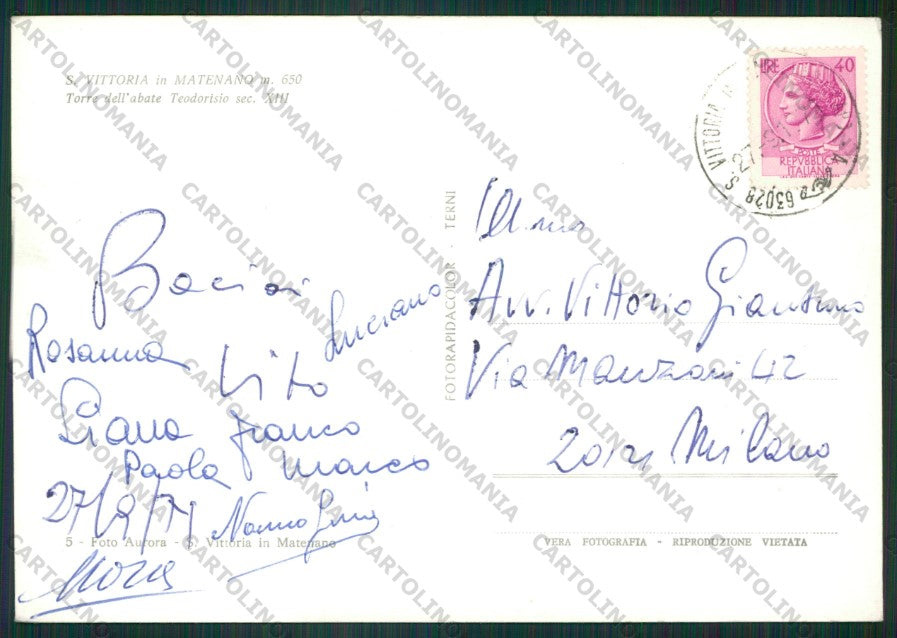 S. VITTORIA in MATENANO m. 650
Torre dell'abate Teodorisio sec. XIII
LIRE 40
POSTE
REPVBBLICA
ITALIANA
63028 S. VITTORIA
FOTORAPIDACOLOR - TERNI
Bacioni
Rosanna
Luciano
Vito
Liana Franco
Paola Marco
27/9/71
Nonno
Ill.mo
Avv. Vittorio
Via Manzoni 42
20121 Milano
5 - Foto Aurora - S. Vittoria in Matenano
VERA FOTOGRAFIA - RIPRODUZIONE VIETATA
CARTOLINOMANIA